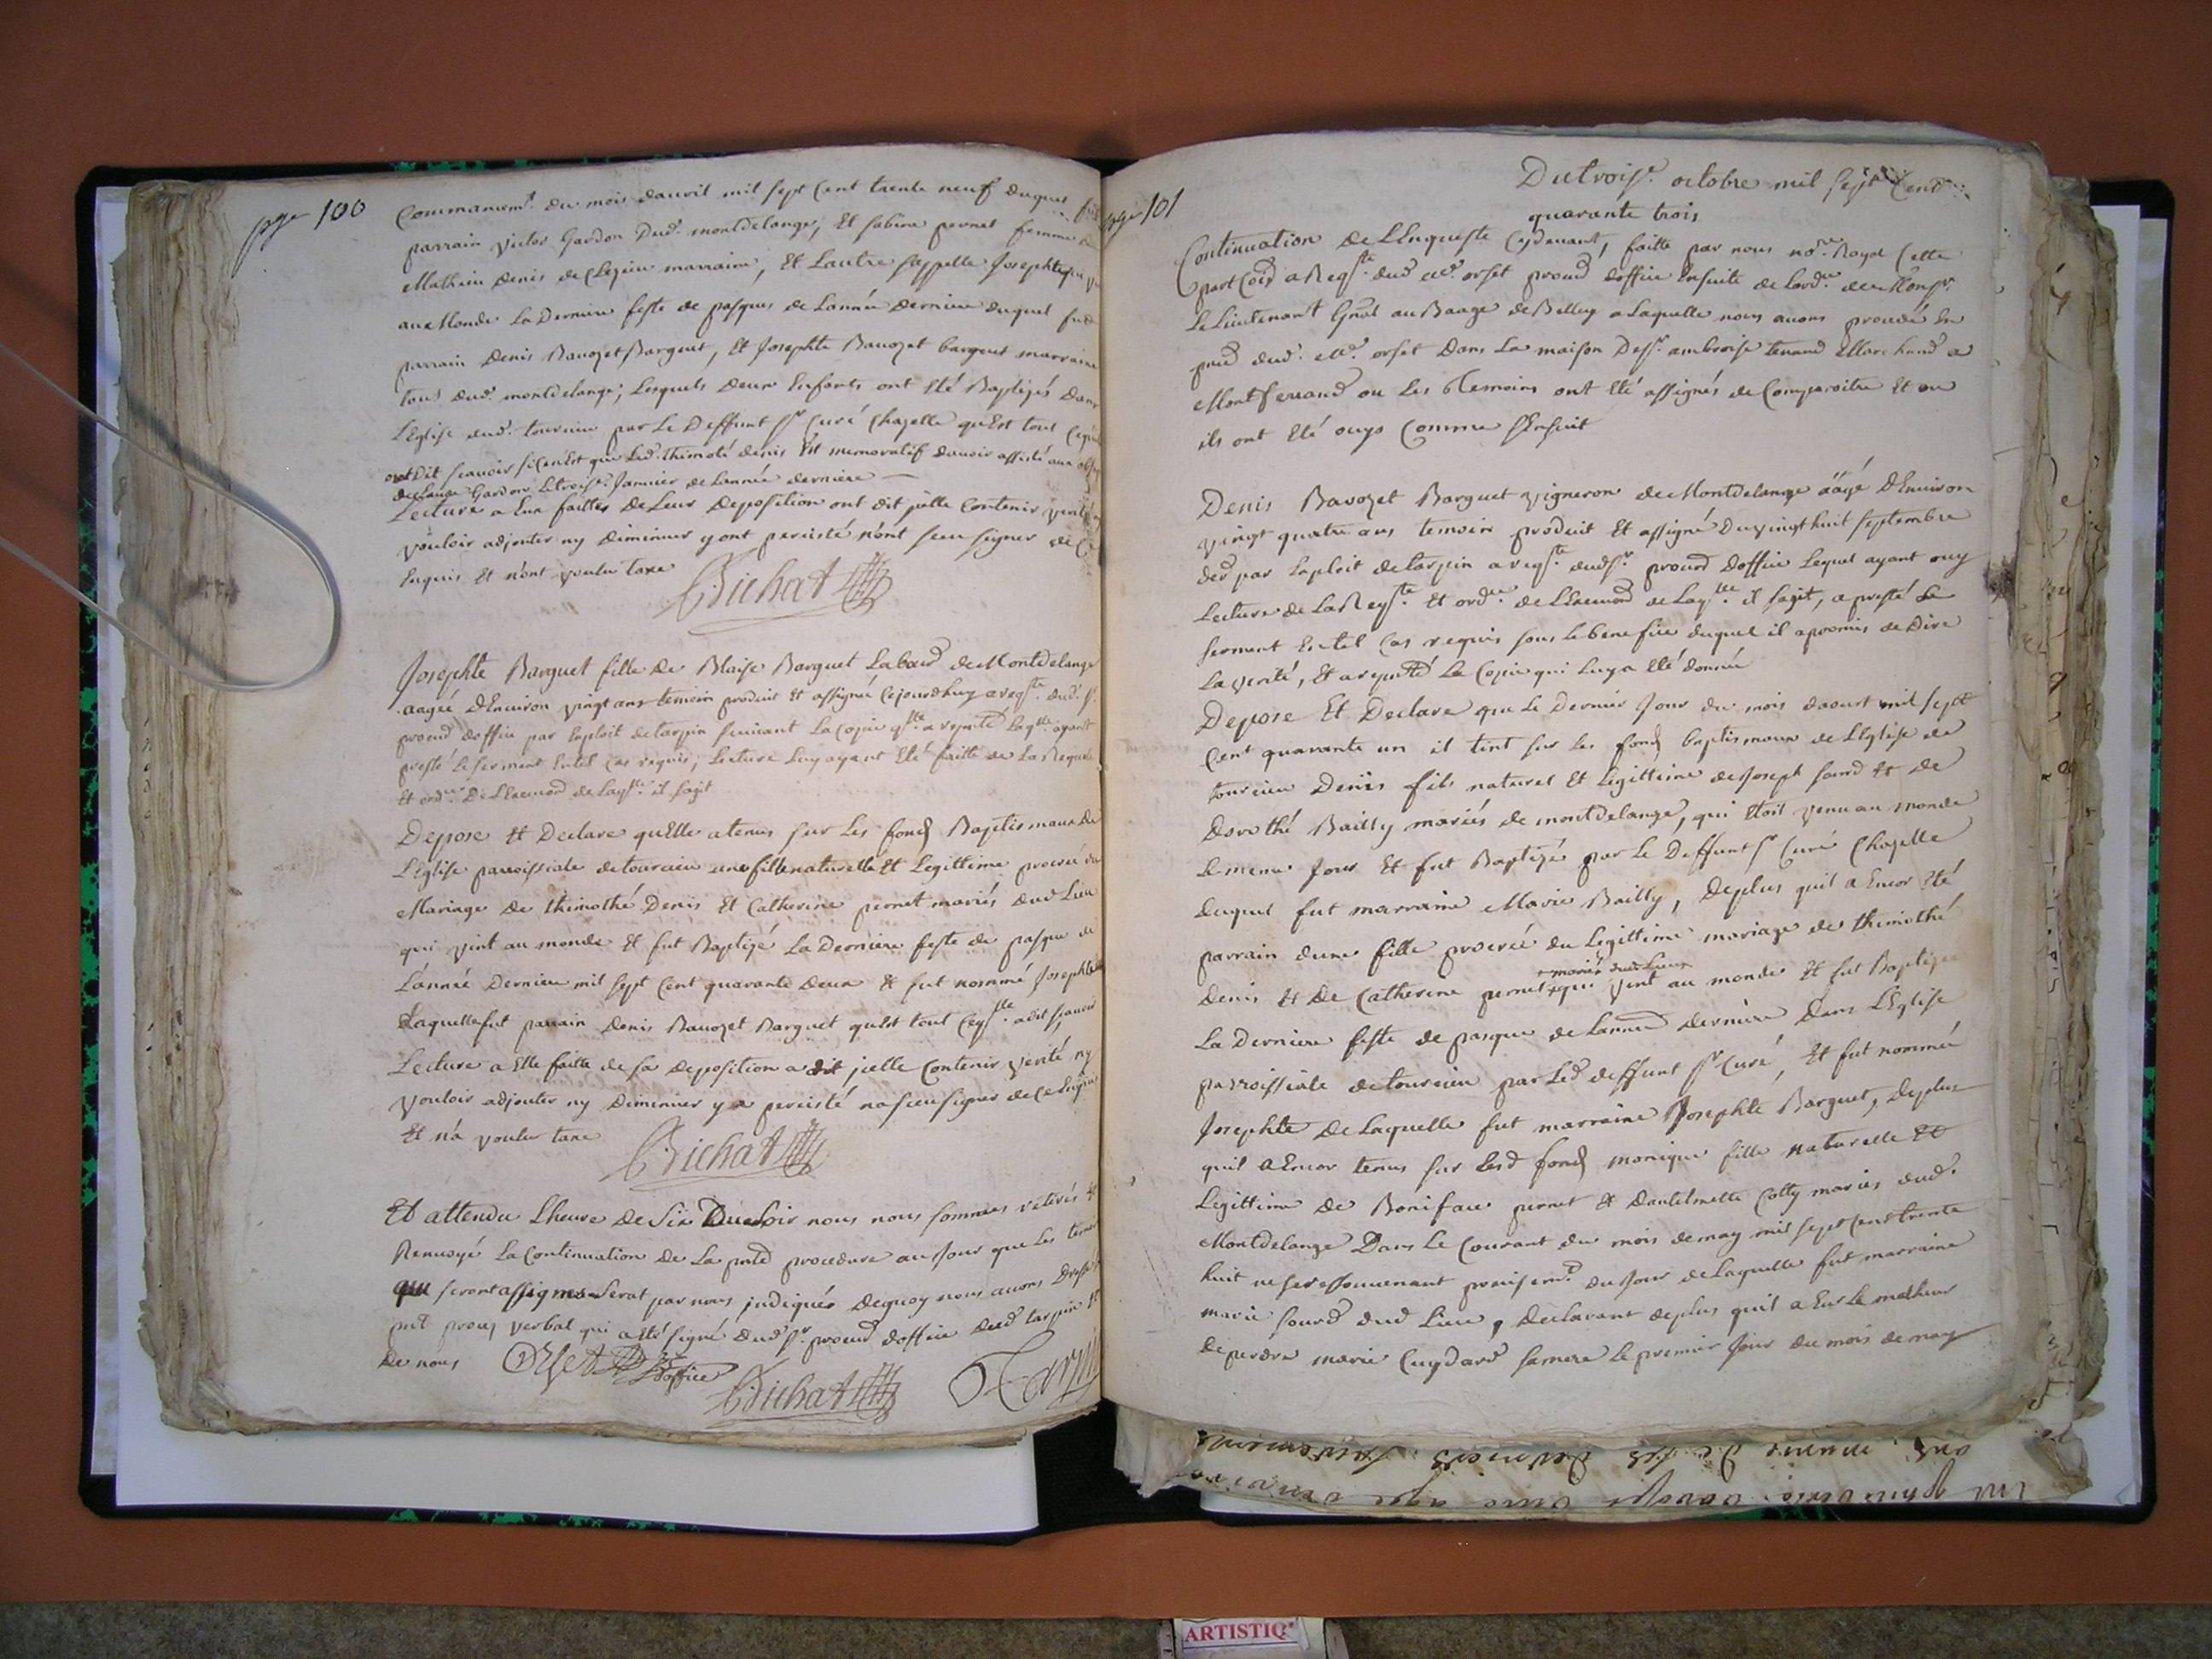 pge 100
Commancemt. du mois davril mil sept Cent trente neuf duquel fut
parrain victor Gardon Dud. montdelange, Et sabine pernet femme
Mathieu Denis de Clezieu marraine, Et Lautre sappelle Josephte
au Monde La Derniere feste de pasques de Lannée Derniere duquel fut
parrain Denis Bavozet Barguet, Et Josephte Bavozet barguet marraine
tous dud. montdelange; Lesquels deux Enfants ont Eté Baptizés Dans
LEglise dud. tourcieu par Le Deffunt Sr Curé Chapelle quEst tout
ont Dit scavoir si cenEst que Led. thimoté denis Est memoratif davoir assisté aux
de Gardon Le troise. Janvier de Lannée derniere
Lecture a Eux faittes de Leur deposition ont dit jcelle Contenir verité
vouloir adjouter ny diminuer y ont percisté nont sceu signer de Ce
Enquis Et nont voulu taxe
Bichat
Josephte Barguet fille de Blaise Barguet Labourd. de Montdelange
aagée dEnviron vingt ans temoin produit Et assigné Cejourdhuy a reqste. dud. Sr
procurd doffice par Exploit de tarpin suivant La Copie qlle. a reputé Laqlle. ayant
presté Le serment Entel Cas requis, Lecture Luy ayant Eté faitte de La Requeste
Et ordce. De LExamend de Laqlle. il sagit
Depose Et Declare quElle a tenus sur Les fonds Baptismaux de
LEglise parroissiale de tourcieu une fille naturelle Et Legittime procréé du
Mariage de thimothé Denis Et Catherine pernet mariés dud Lieu
qui vint au monde Et fut Baptizé La Derniere feste de pasque de
Lannée Derniere mil sept Cent quarante deux Et fut nommé Josephte
Laquelle fut parrain Denis Bavozet Barguet quEst tout a dit scavoir
Lecture a Elle faitte de sa deposition a dit jcelle Contenir verité, ny
vouloir adjouter ny diminuer y a percisté na sceu signer de ce Enquis
Et n'a voulu taxe
Bichat
Et attendu Lheure de Six Du Soir nous nous sommes retirés Et
Renvoyé La Continuation de La pnte procedure au Jour que Les temoins
qui seront assignés Serat par nous jndiqués Dequoy nous avons Dressé
pnt proces verbal qui a Eté signé dud Sr. procurd doffice dud tarpin Et
De nous
Orset
doffice
Bichat
Tarpin
pge 101
Du troise. octobre mil sept Cent
quarante trois
Continuation de LEnqueste Cydevant, faitte par nous nore. Royal Cette
part a Reqste. dud Me. orset procurd doffice Ensuite de Lordce. de Monsr.
Le Lieutenant Gnal au Baage de Belley a Laquelle nous avons procedé En
pnce dud. Me. orset Dans La maison De Sr. ambroise tenand Marchand a
Montferrand ou Les temoins ont Eté assignés de Comparoitre Et ou
ils ont Eté ouys Comme sEnsuit
Denis Bavozet Barguet vigneron de Montdelange aâgé dEnviron
vingt quatre ans temoin produit Et assigné Du vingt huit septembre
der par Exploit de tarpin a reqste. dud Sr. procurd doffice Lequel ayant ouy
Lecture de La Reqste. Et ordce. de LExamend de Laqlle. il sagit, a presté Le
serment Entel Cas requis sous Le benefice duquel il a promis de Dire
La verité, Et a reputé La Copie qui Luy a Eté donnée
Depose Et Declare que Le Dernier Jour du mois daoust mil sept
Cent quarante un il tint sur Les fonds baptismaux de LEglise de
tourcieu Denis fils naturel Et Legittime de Joseph sourd Et de
dorothé Bailly mariés de montdelange, qui Etoit venu au monde
Le meme Jour Et fut Baptizé par Le Deffunt Sr Curé Chapelle
duquel fut marraine Marie Bailly, Deplus quil a Encor Eté
parrain dune fille procréé du Legittime mariage de thimothé
mariés dud Lieu
Denis Et De Catherine pernet qui vint au monde Et fut Baptizé
La Derniere feste de pasque de Lannée Derniere Dans LEglise
parroissiale de tourcieu par Led deffunt Sr Curé, Et fut nommée
Josephte De Laquelle fut marraine Josephte Barguet, Deplus
quil a Encor tenus sur Lesd fonds monique fille naturelle Et
Legittime de Boniface pernet Et dantelmette Cotty mariés dud.
Montdelange Dans Le Courant du mois de may mil sept Cent trente
huit ne se ressouvenant precisemt. du Jour de Laquelle fut marraine
marie sourd dud Lieu, declarant deplus quil a Eu Le malheur
de perdre marie Cuydard sa mere Le premier Jour du mois de may
ARTISTIQ